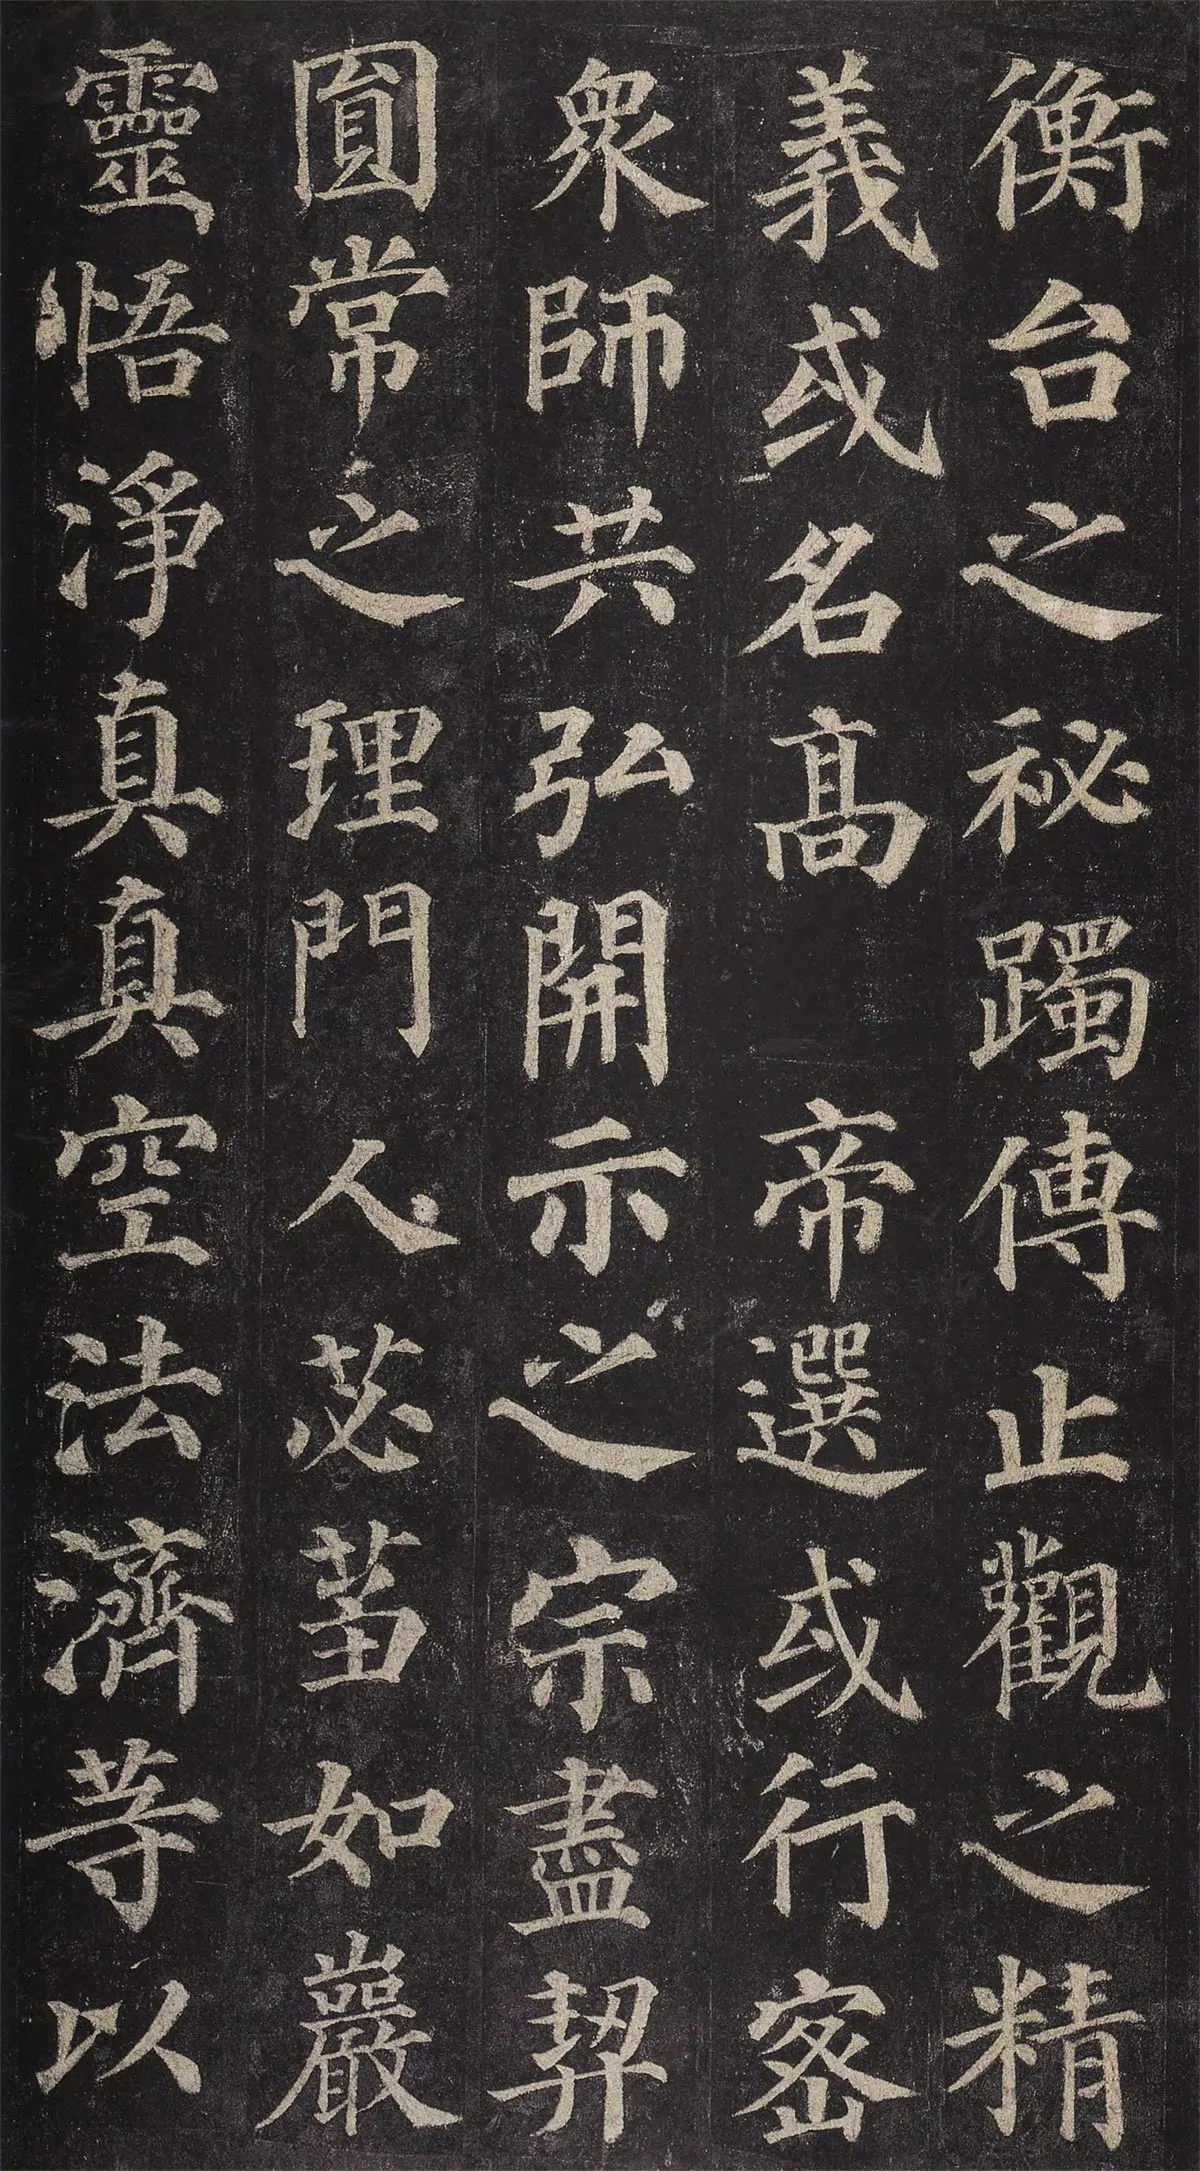 衡台之祕躅傳止觀之精
義或名高 帝選或行密
眾師共弘開示之宗盡契
圎常之理門人苾蒭如巖
靈悟淨真真空法濟等以